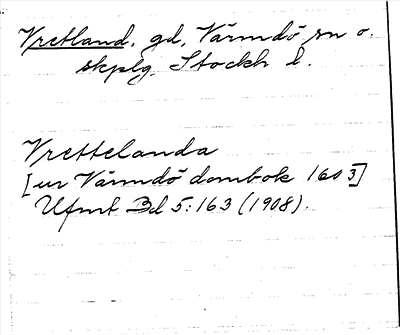 Vretland, gd, Värmdö sn o.
skplg, Stockh l.
Vrettelanda
[ur Värmdö dombok 1603]
Ufmt Bd 5:163 (1908).